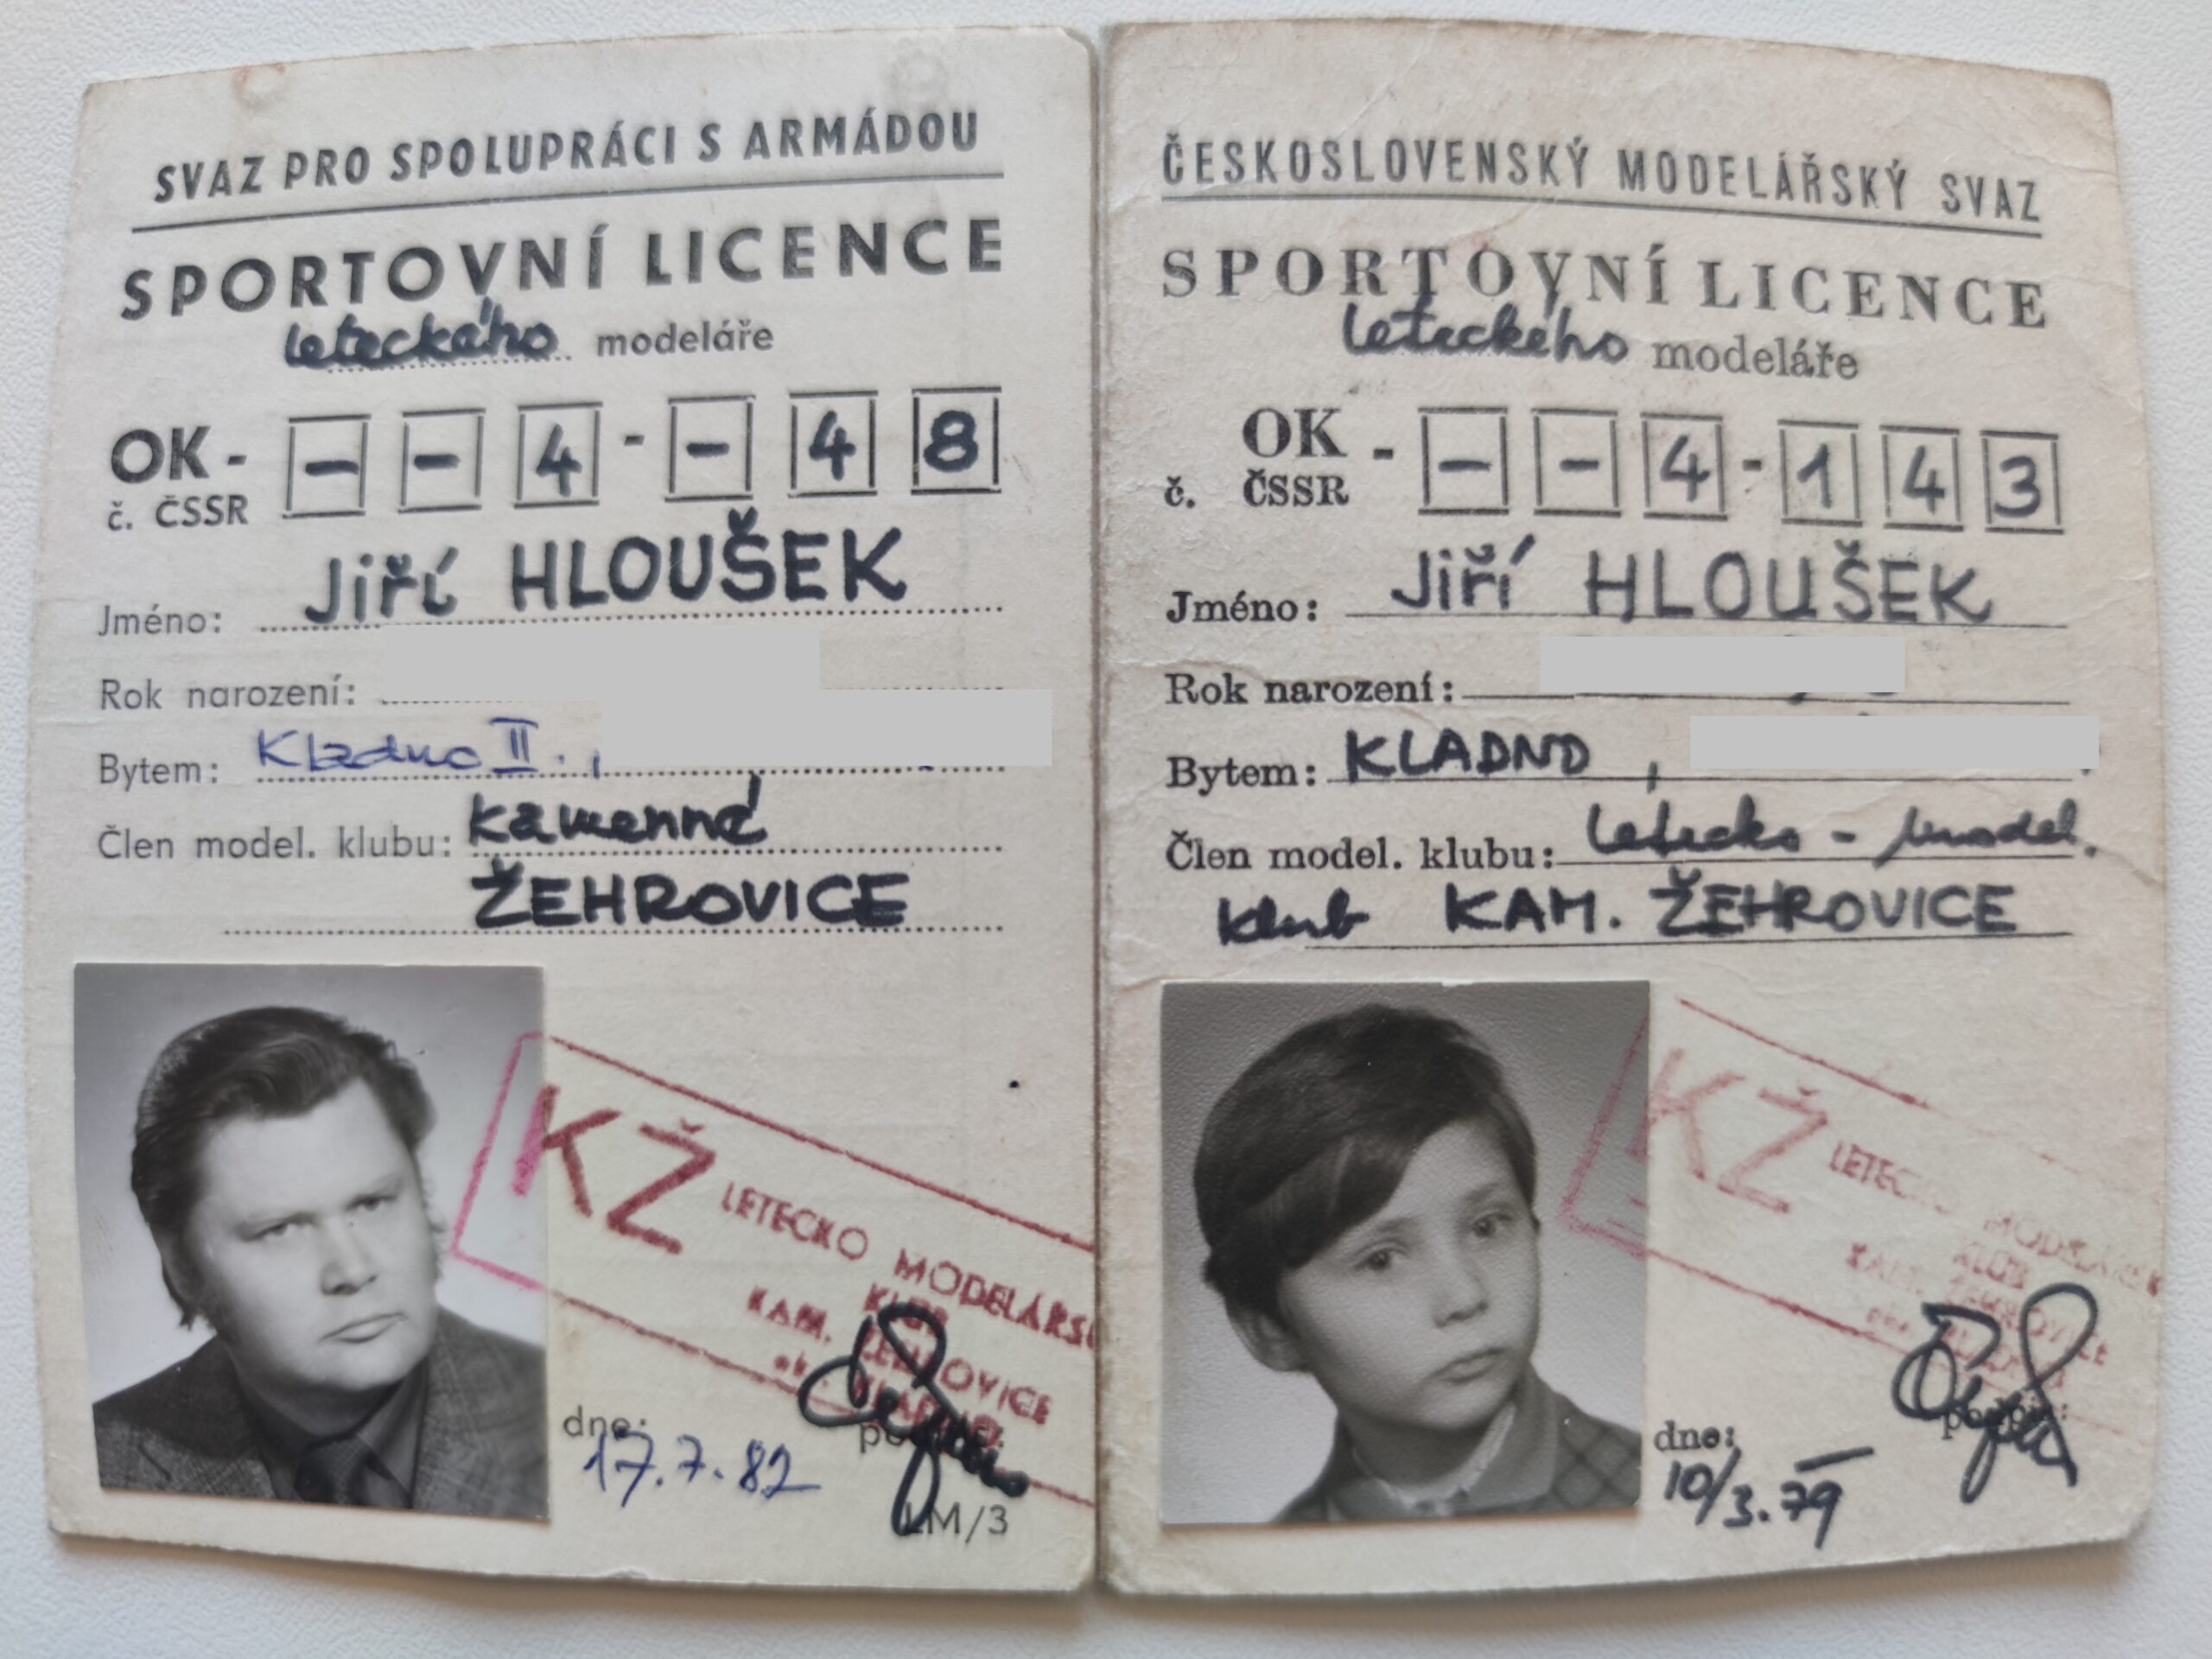 SVAZ PRO SPOLUPRÁCI S ARMÁDOU
SPORTOVNÍ LICENCE
leteckého modeláře
OK - - - 4 - - 4 8
č. ČSSR
Jméno: Jiří HLOUŠEK
Rok narození:
Bytem: Kladno II. ,
Člen model. klubu: Kamenné
ŽEHROVICE
KŽ LETECKO MODELÁŘSK
KLUB
KAM. ŽEHROVICE
ok. KLADNO
dne: podpis:
17.7.82
LM/3
ČESKOSLOVENSKÝ MODELÁŘSKÝ SVAZ
SPORTOVNÍ LICENCE
leteckého modeláře
OK - - - 4 - 1 4 3
č. ČSSR
Jméno: Jiří HLOUŠEK
Rok narození:
Bytem: KLADNO ,
Člen model. klubu: letecko - model.
klub KAM. ŽEHROVICE
KŽ LETECKO MODELÁŘSK
KLUB
KAM. ŽEHROVICE
dne: podpis:
10/3.79